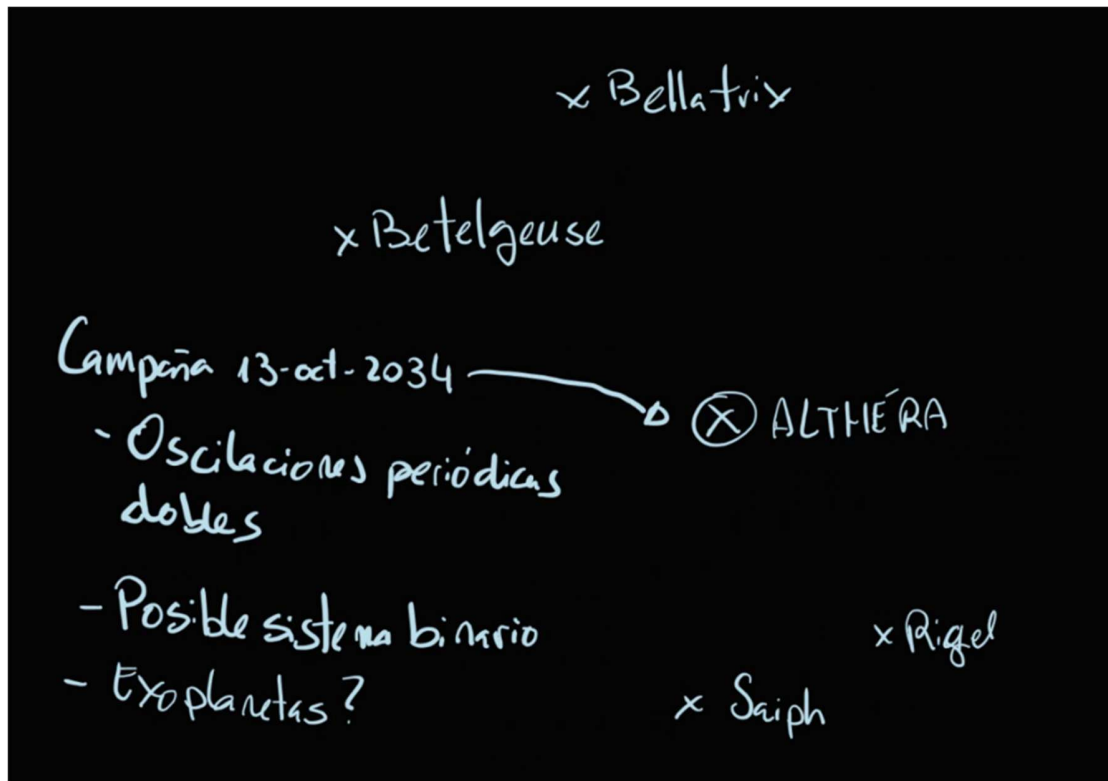 x Bellatrix
x Betelgeuse
Campaña 13-oct-2034
x ALTHÉRA
- Oscilaciones periódicas
dobles
- Posible sistema binario
x Rigel
- Exoplanetas?
x Saiph